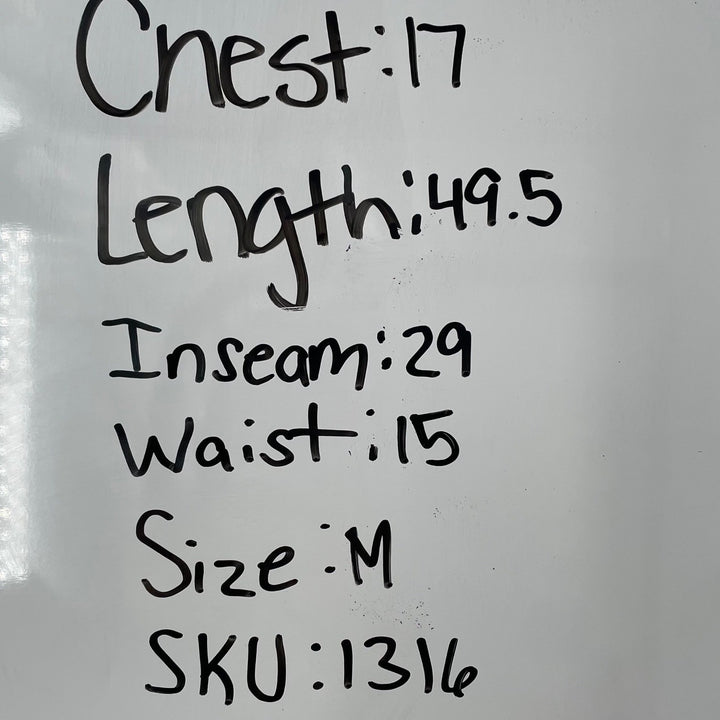 Chest:17
Length:49.5
Inseam:29
Waist:15
Size:M
SKU:1316